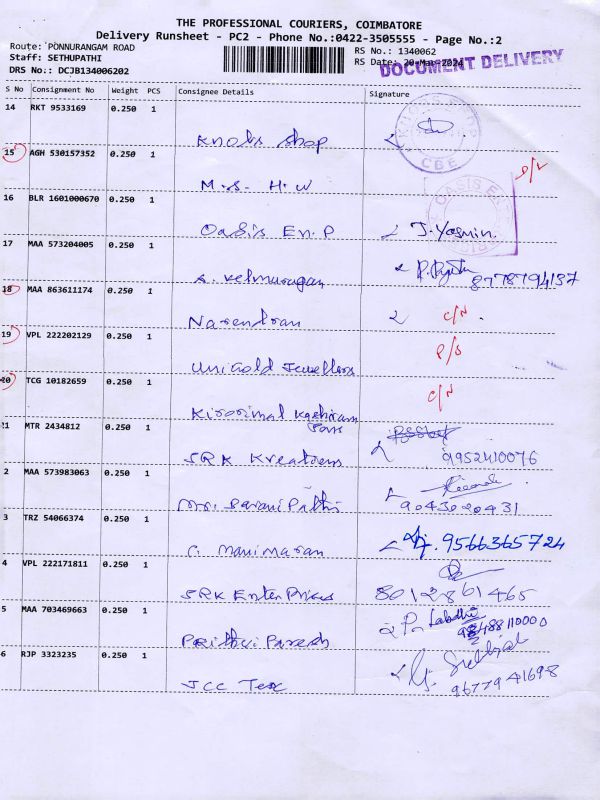 THE PROFESSIONAL COURIERS, COIMBATORE
Delivery Runsheet - PC2 - Phone No.:0422-3505555 - Page No.:2
Route: PONNURANGAM ROAD
RS No.: 1340062
Staff: SETHUPATHI
RS Date: 20-Mar-2024
DOCUMENT DELIVERY
DRS No.: DCJB134006202
S No Consignment No Weight PCS Consignee Details Signature
14 RKT 9533169 0.250 1
Knobs Shop
CBE
15 AGH 530157352 0.250 1
M.S. H.W
16 BLR 1601000670 0.250 1
OASIS
Oasis En.P J. Yasmin.
17 MAA 573204005 0.250 1
S. Velmurugan 8778794137
18 MAA 863611174 0.250 1
Narendran C/N.
19 VPL 222202129 0.250 1
P/S
UniGold Jewellers
20 TCG 10182659 0.250 1
C/N
Kirorimal Kashiram
Sons
21 MTR 2434812 0.250 1
SRK Kreations 9952410076
2 MAA 573983063 0.250 1
Mrs. Sarani Pathi 9043020431
3 TRZ 54066374 0.250 1
C. Manimaran 9566365724
4 VPL 222171811 0.250 1
SRK EnterPrises 8012861465
5 MAA 703469663 0.250 1
Prithvi Paresh P. Labdhi
9848811000
6 RJP 3323235 0.250 1
JCC Tex 9677941698